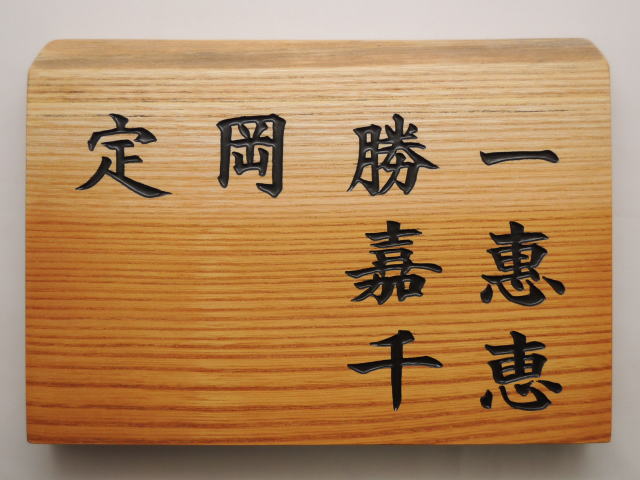 定岡勝一
嘉惠
千恵